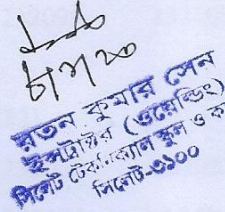 রতন কুমার সেন
ইন্সট্রাক্টর (ওয়েল্ডিং)
সিলেট টেকনিক্যাল স্কুল ও ক
সিলেট-৩১০০